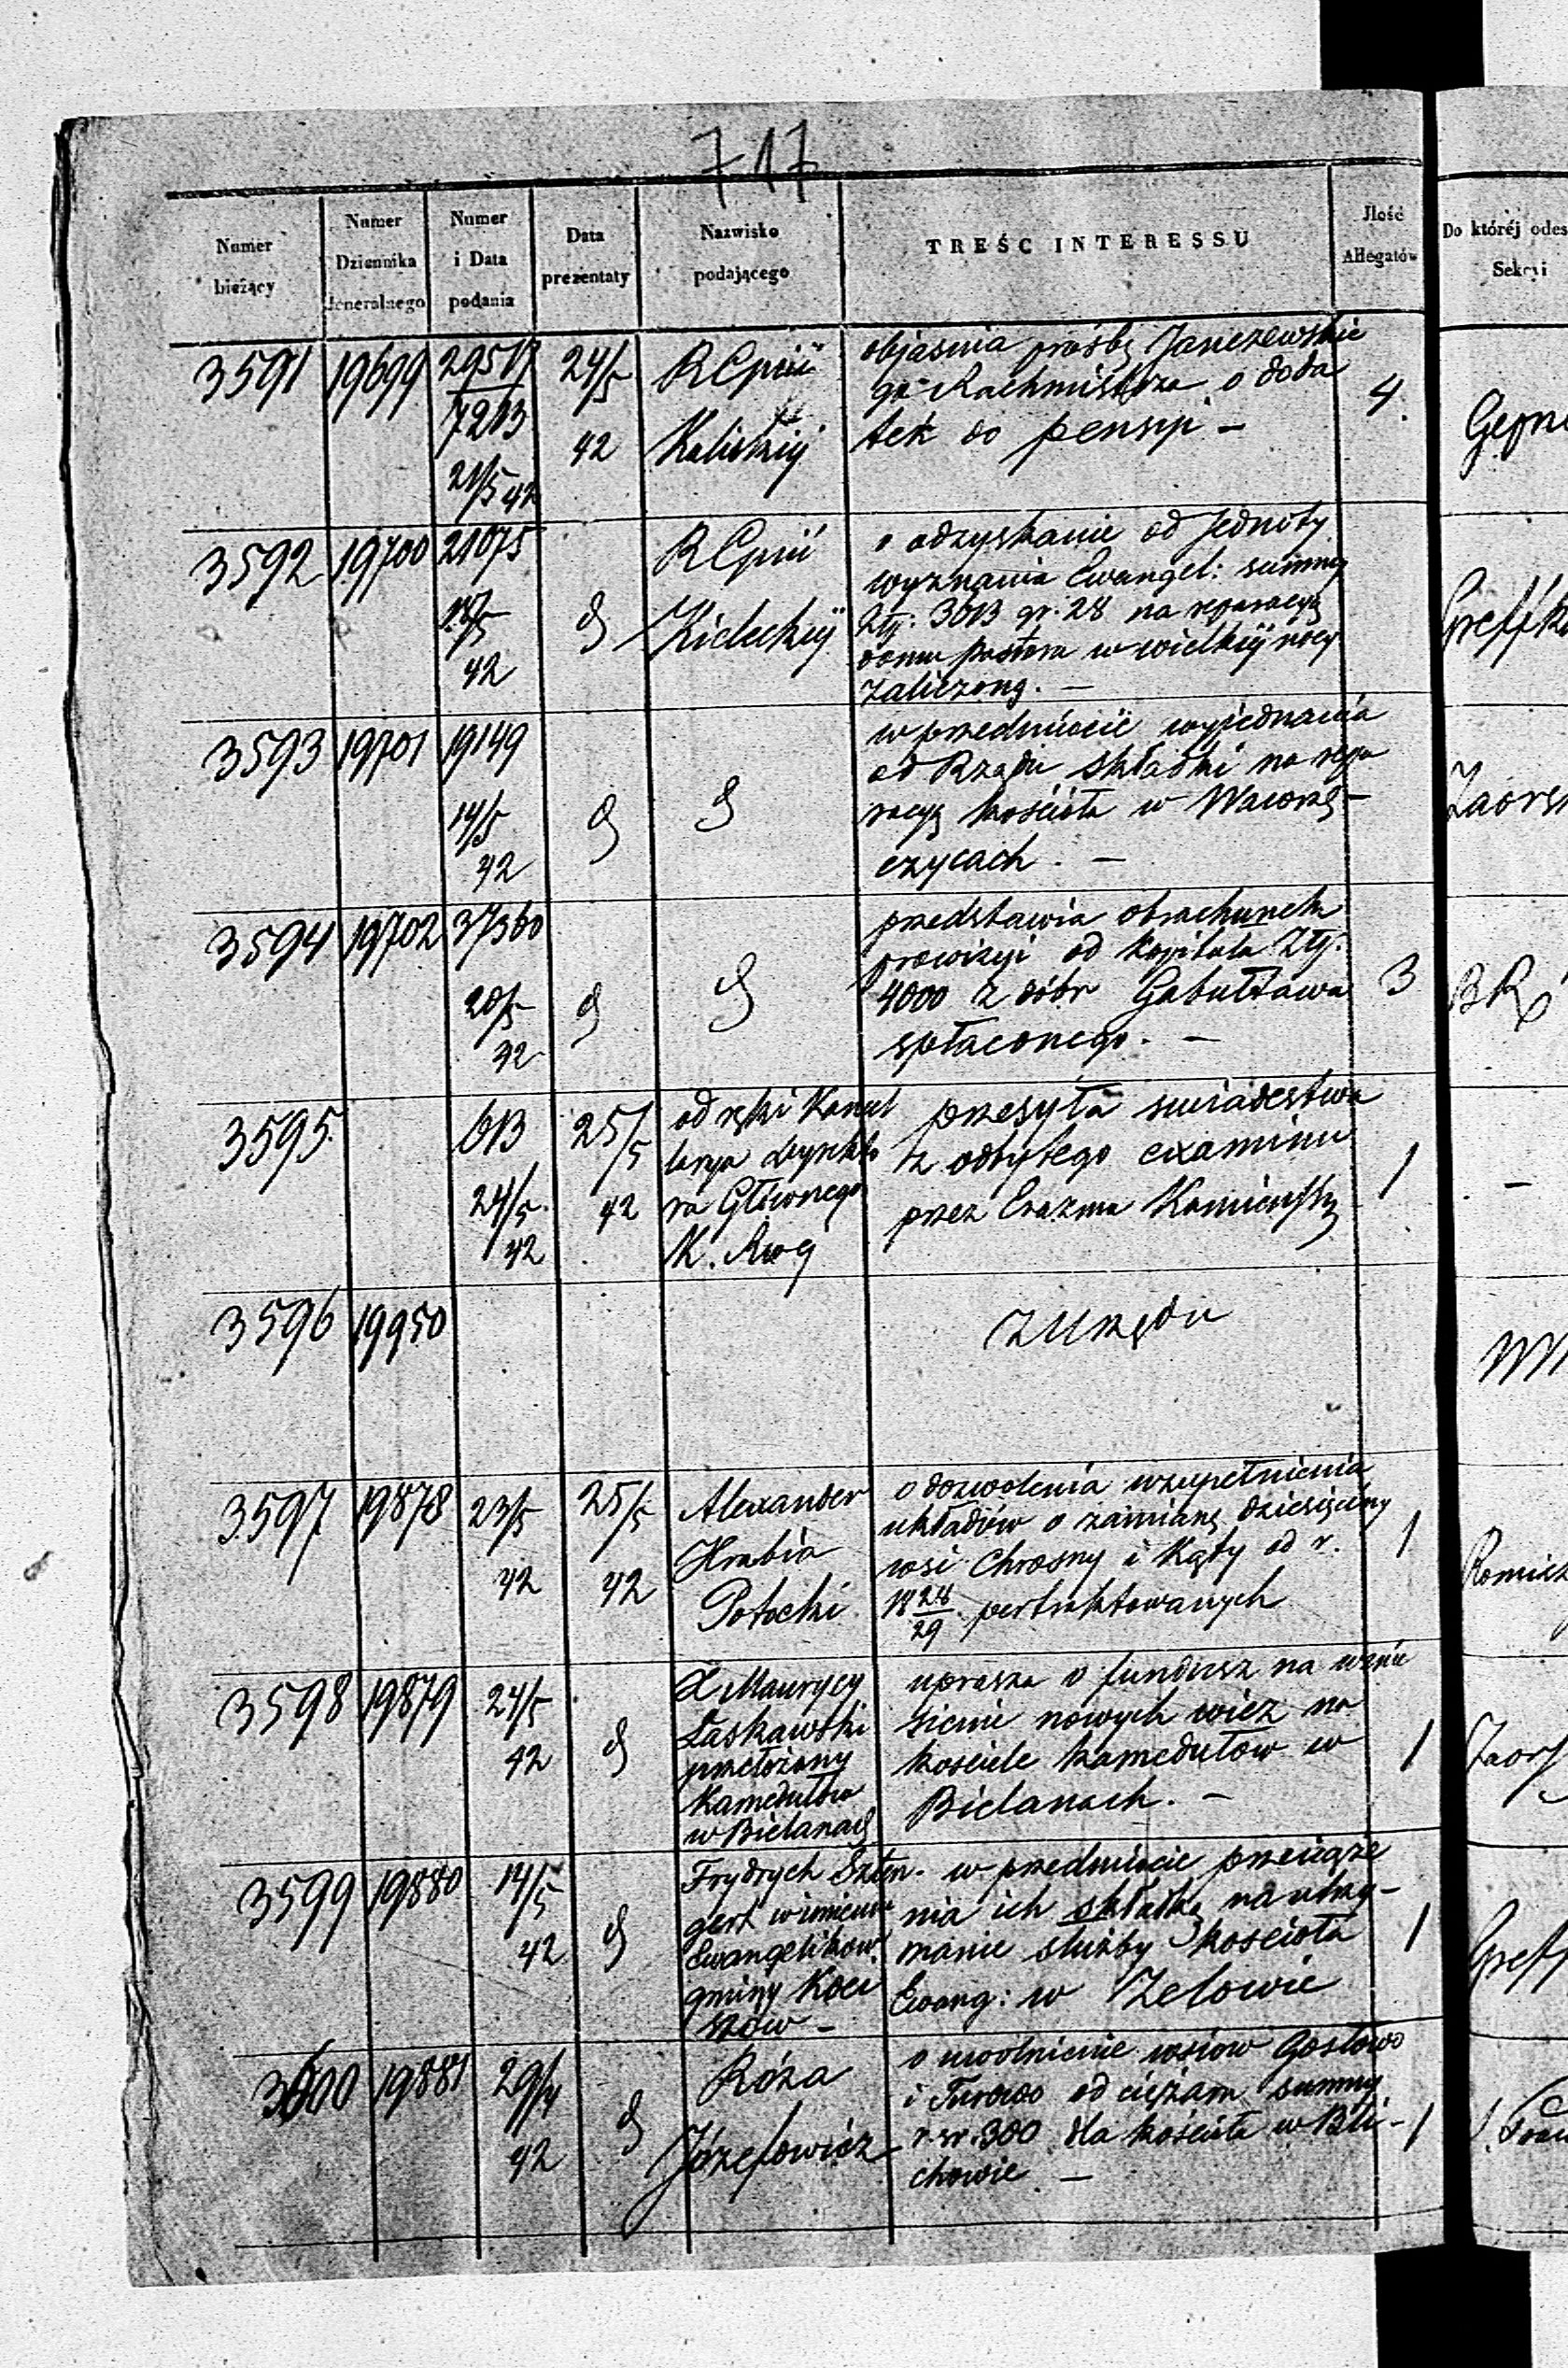 717
Numer bieżący
Numer Dziennika Jeneralnego
Numer i Data podania
Data prezentaty
Nazwisko podającego
TREŚC INTERESSU
Jlość Allegatów
Do któréj odes
Sekcyi
3591 19699 29517 / 7213 21/5 42 24/5 42
Kaliskiij
objasnia prośbę Janczewskie
go Rachmistrza o doda
tek do pensyi –
4.
3592 19700 21075 18/5 42
Kieleckiij
o odzyskanie od Jednoty
wyznania Ewangel: summy
Złtj: 3013 gr. 28 na reparacyą
domu pastora w wielkiij nocy
zaliczoną. –
3593 19701 19149 14/5 42
w przedmiocie wyjednania
od Rządu składki na repa
racyą kościoła w Waworzę–
czycach. –
Zaors
3594 19702 37360 20/5 42
przedstawia obrachunek
prowizyi od kapitału Złtj.
4000 z dóbr Gabułtawa
spłaconego. –
3
BR
3595. 613 24/5 42 25/5 42
od ręki Kancel
larya Dyrekto
ra Głównego
przesyła swiadectwa
z odbytego examinu
przez Erazma
1
–
3596 19950
z Urzędu
3597 19878 23/5 42 25/5 42
Alexander
Hrabia
Potocki
o dozwolenia uzupełnienia
układów o zamianę dziesięciny
wsi Chrosny i Kąty od r.
18 28/29 pertraktowanych
1
3598 19879 24/5 42
X Maurycy
Łaskawski
przełożony
Kamedułów
w Bielanach
uprasza o fundusz na wznie
sienie nowych wież na
kosciele kamedułow w
Bielanach. –
1
3599 19880 14/5 42
Frydrych Szten-
gert w imieniu
Ewangelikow
gminy Koci
szow –
w przedmiocie przeciąże
nia ich składką na utrzy–
manie służby kościoła
Ewang: w Zelowie
1
3600 19881 29/4 42
Róża
Józefowicz
o uwolnienie wsiow Gosłowo
i Turowo od ciężaru summy
r.sr. 300 dla kościoła w Bli–
chowie –
1